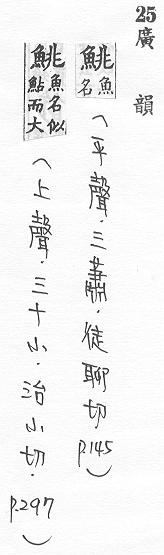 25廣韻
鮡魚名(平聲.三蕭.徒聊切p.145)
鮡魚名似鮎而大(上聲.三十小.治小切.p.297)